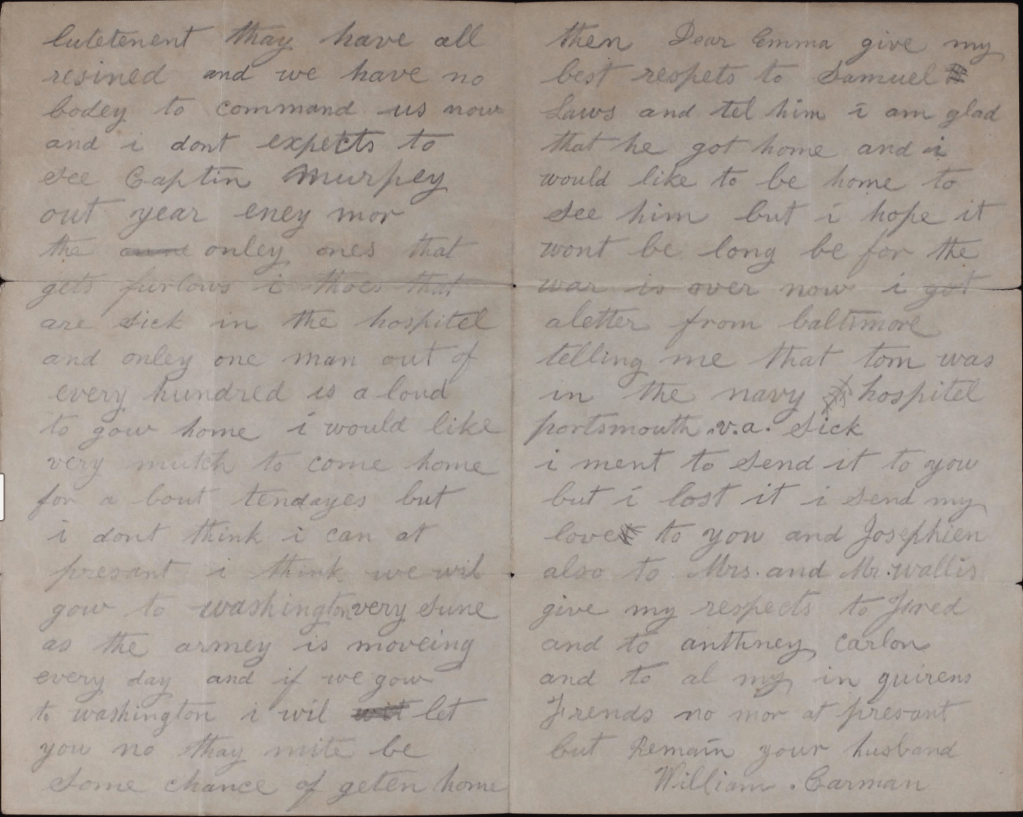 lutetenent thay have all
resined and we have no
bodey to command us now
and i dont expects to
see Captin Murpey
out year eney mor
the onley ones that
gets furlows i thoes that
are sick in the hospitel
and onley one man out of
every hundred is a loud
to gow home i would like
very mutch to come home
for a bout tendayes but
i dont think i can at
presant i think we wil
gow to washington very sune
as the armey is moveing
every day and if we gow
to washington i wil let
you no thay mite be
some chance of geten home
then Dear Emma give my
best respets to Samuel
Laws and tel him i am glad
that he got home and i
would like to be home to
see him but i hope it
wont be long be for the
war is over now i got
aletter from baltimore
telling me that tom was
in the navy hospitel
portsmouth v.a. sick
i ment to send it to you
but i lost it i send my
love to you and Josephien
also to Mrs. and Mr. wallis
give my respects to Jered
and to anthney carlon
and to al my in quirens
Frends no mor at presant
but Remain your husband
William . Carman